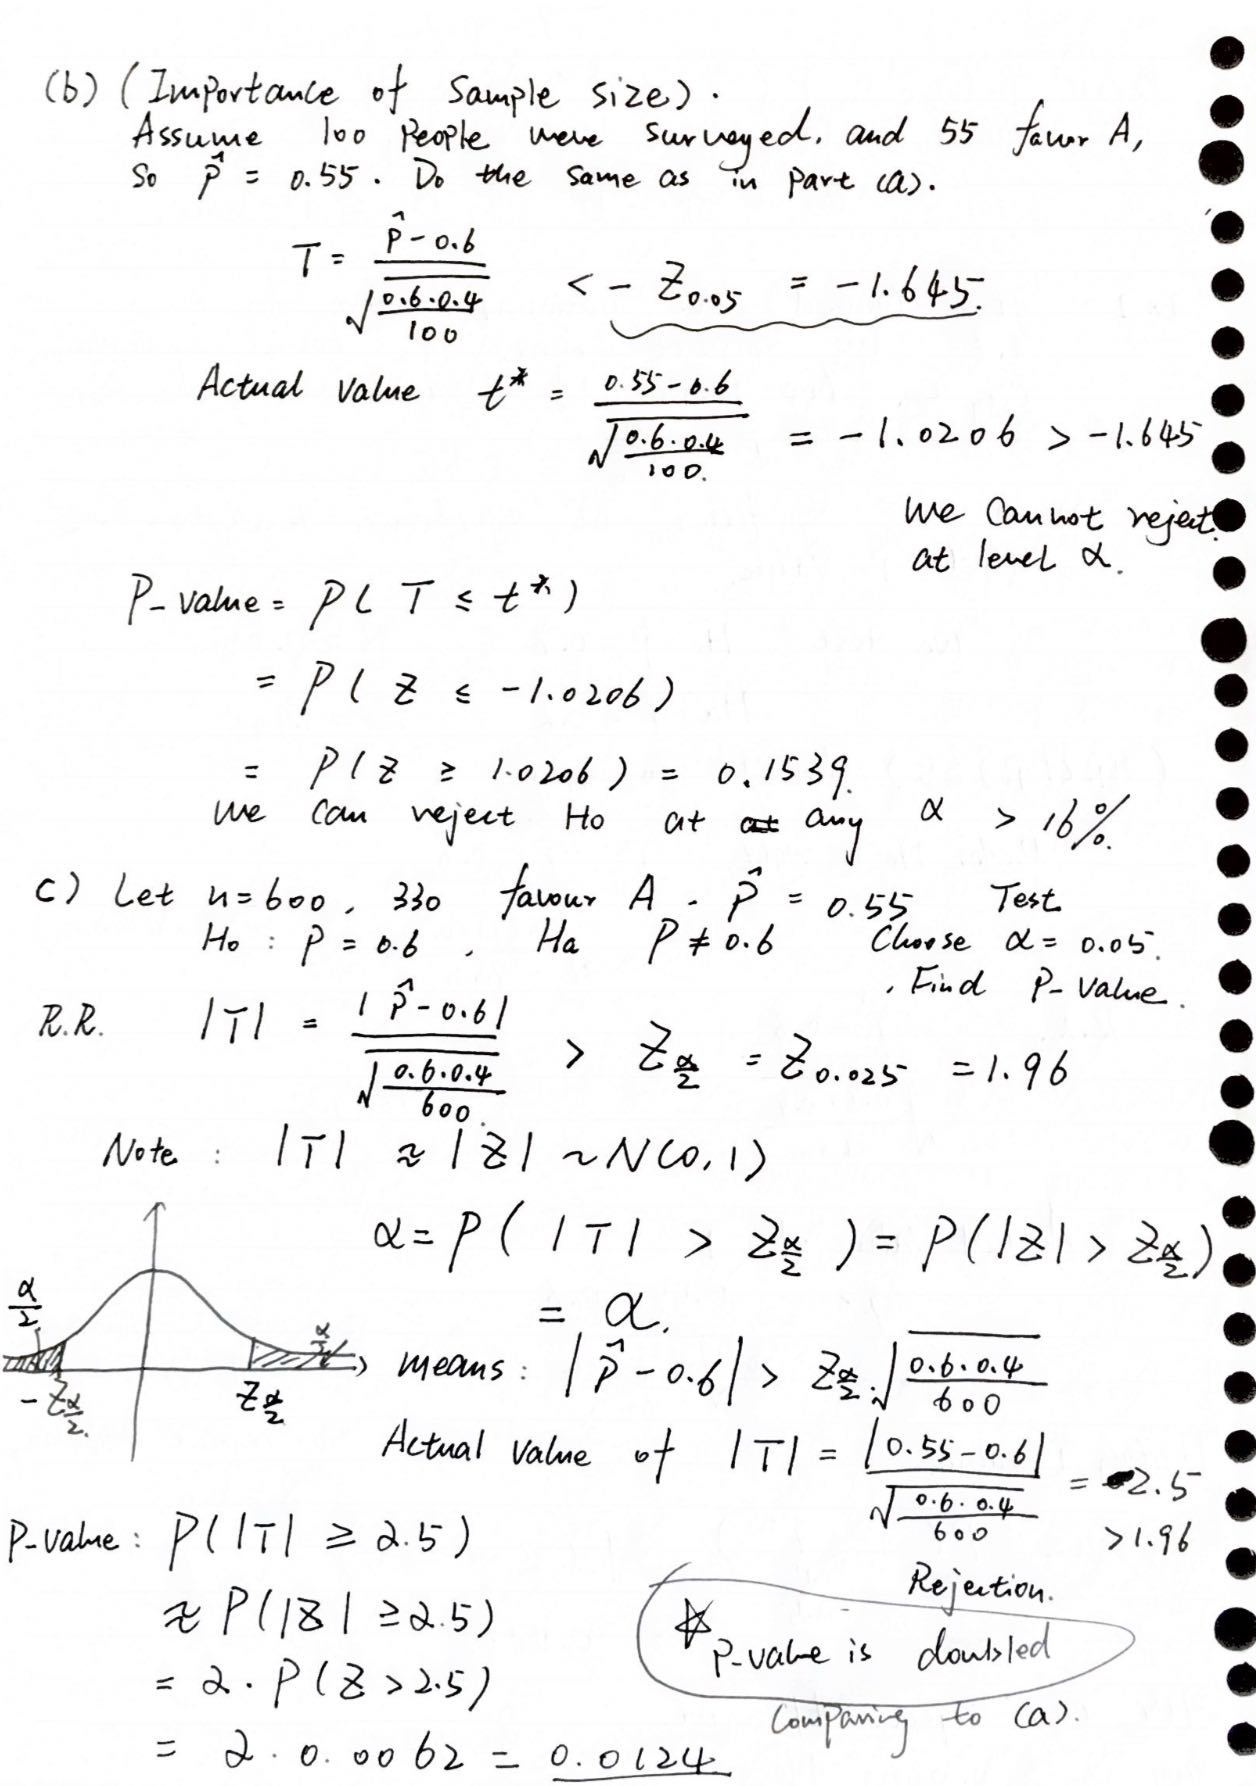 (b) (Importance of Sample size).
Assume 100 People were surveyed. and 55 favor A,
So p̂ = 0.55. Do the same as in part (a).
T = (p̂ - 0.6) / √(0.6·0.4 / 100) < - Z_{0.05} = -1.645.
Actual Value t* = (0.55 - 0.6) / √(0.6·0.4 / 100.) = -1.0206 > -1.645
We Cannot reject.
at level α.
P-value = P( T ≤ t* )
= P( Z ≤ -1.0206)
= P(Z ≥ 1.0206) = 0.1539.
We can reject Ho at any α > 16%.
c) Let n=600, 330 favour A. p̂ = 0.55 Test
Ho : P = 0.6, Ha P ≠ 0.6 Choose α = 0.05.
, Find P-value.
R.R. |T| = |p̂ - 0.6| / √(0.6·0.4 / 600.) > Z_{α/2} = Z_{0.025} = 1.96
Note : |T| ≈ |Z| ~ N(0,1)
α = P( |T| > Z_{α/2} ) = P(|Z| > Z_{α/2})
= α.
α/2 α/2
means: |p̂ - 0.6| > Z_{α/2}·√(0.6·0.4 / 600)
-Z_{α/2} Z_{α/2}
Actual value of |T| = |0.55 - 0.6| / √(0.6·0.4 / 600) = 2.5
> 1.96
Rejection.
P-value : P(|T| ≥ 2.5)
≈ P(|Z| ≥ 2.5)
= 2·P(Z > 2.5)
= 2·0.0062 = 0.0124
☆ P-value is doubled
Comparing to (a).